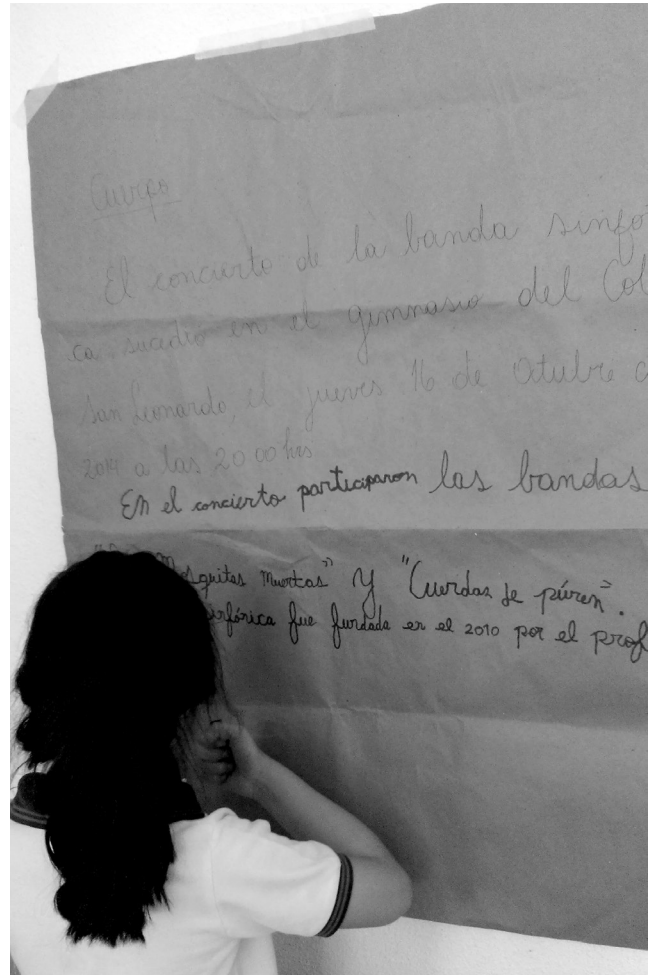 Cuerpo
El concierto de la banda sinfó
ca sucedió en el gimnasio del Col
san Leonardo, el jueves 16 de Octubre d
2014 a las 20 00 hrs
En el concierto participaron las bandas
Mosquitas Muertas" y "Cuerdas de púren".
sinfónica fue fundada en el 2010 por el prof